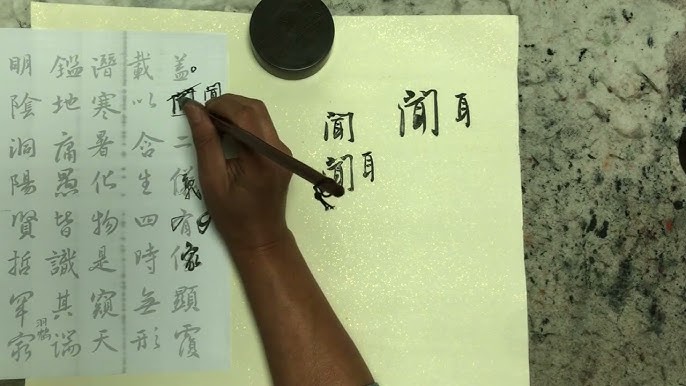 聞耳
聞
聞耳
聞
盖聞二儀有像顯覆
載以含生四時無形
潛寒暑化物是窺天
鑑地庸愚皆識其端
明陰洞陽賢哲罕窮